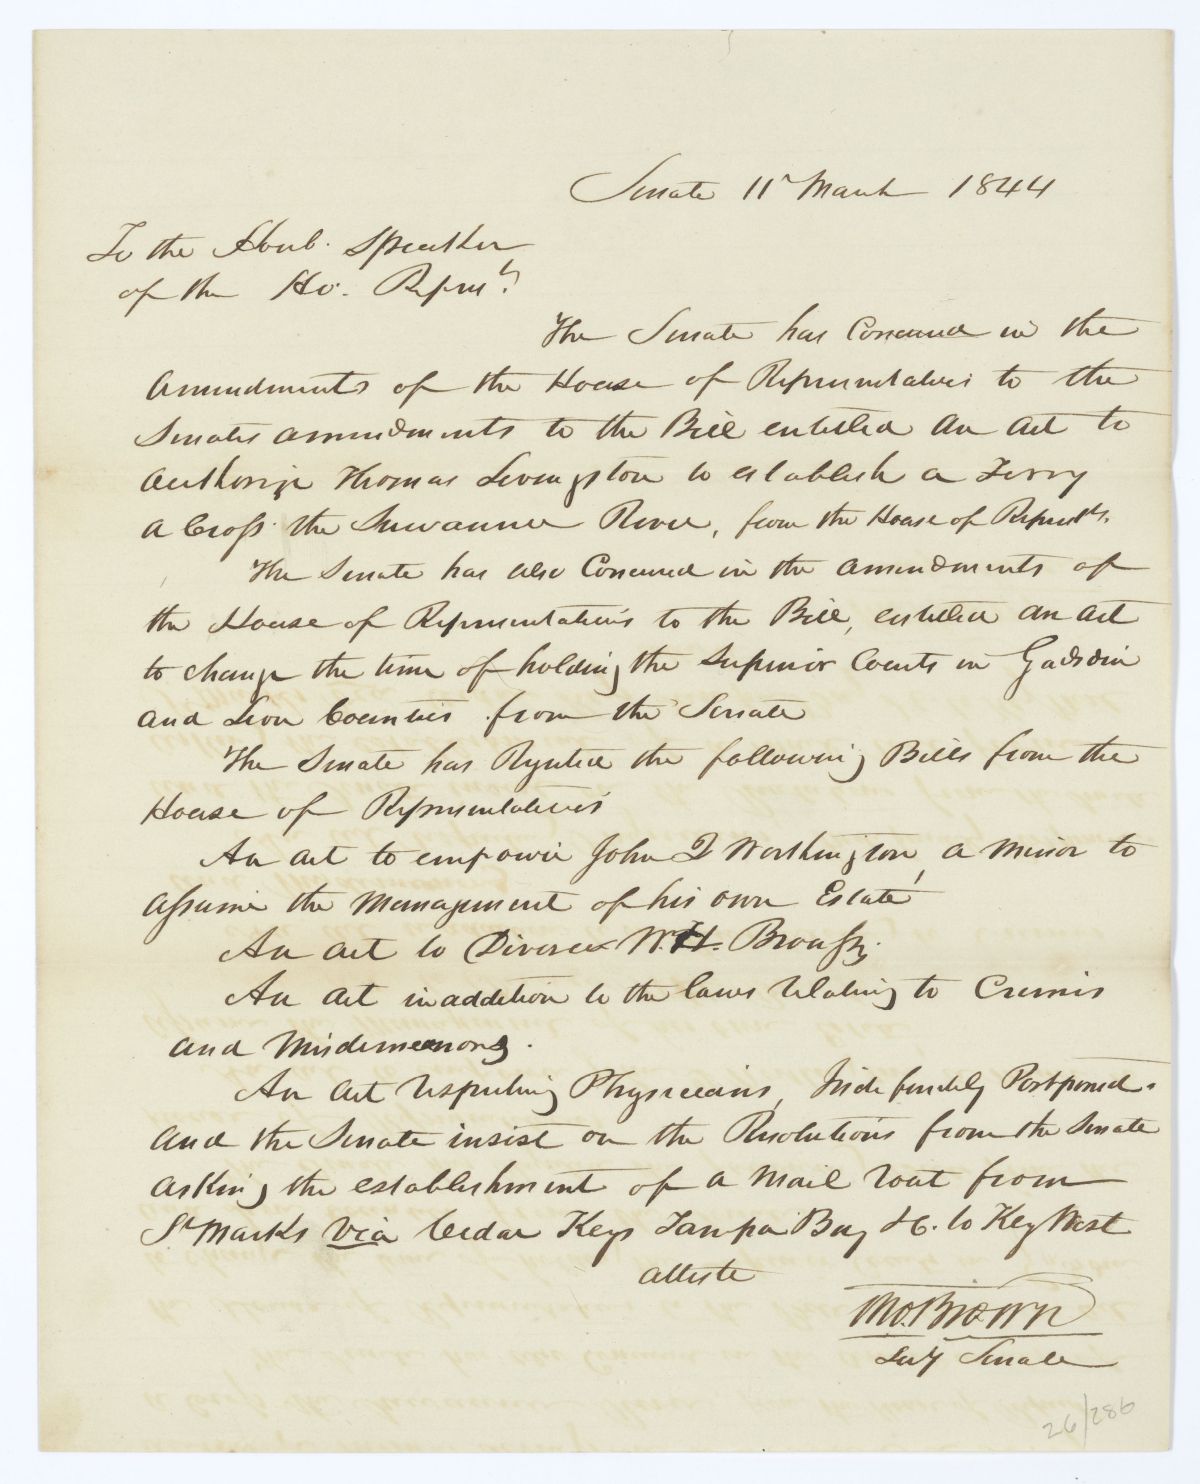 Senate 11th March 1844
To the Honb. Speaker
of the Ho. Reprs.
The Senate has Concured in the
amendments of the House of Representatives to the
Senates amendments to the Bill entitled An act to
authorize Thomas Livingston to establish a Ferry
across the Suwannee River, from the House of Represts.
The Senate has also Concured in the amendments of
the House of Representatives to the Bill, entitled an act
to change the time of holding the Superior Courts in Gadsden
and Leon Counties from the Senate
The Senate has Rejected the following Bills from the
House of Representatives
An act to empower John T Worthington, a minor to
assume the management of his own Estate
An act to Divorce W. H. Bronssy.
An act in addition to the laws relating to Crimes
and Misdemeanors.
An act respecting Physicians, Indefinitely Postponed.
and the Senate insist on the Resolutions from the Senate
asking the establishment of a mail rout from
St Marks via Cedar Keys Tampa Bay &c. to Key West
atteste
Tho. Brown
Secy Senate
26/286